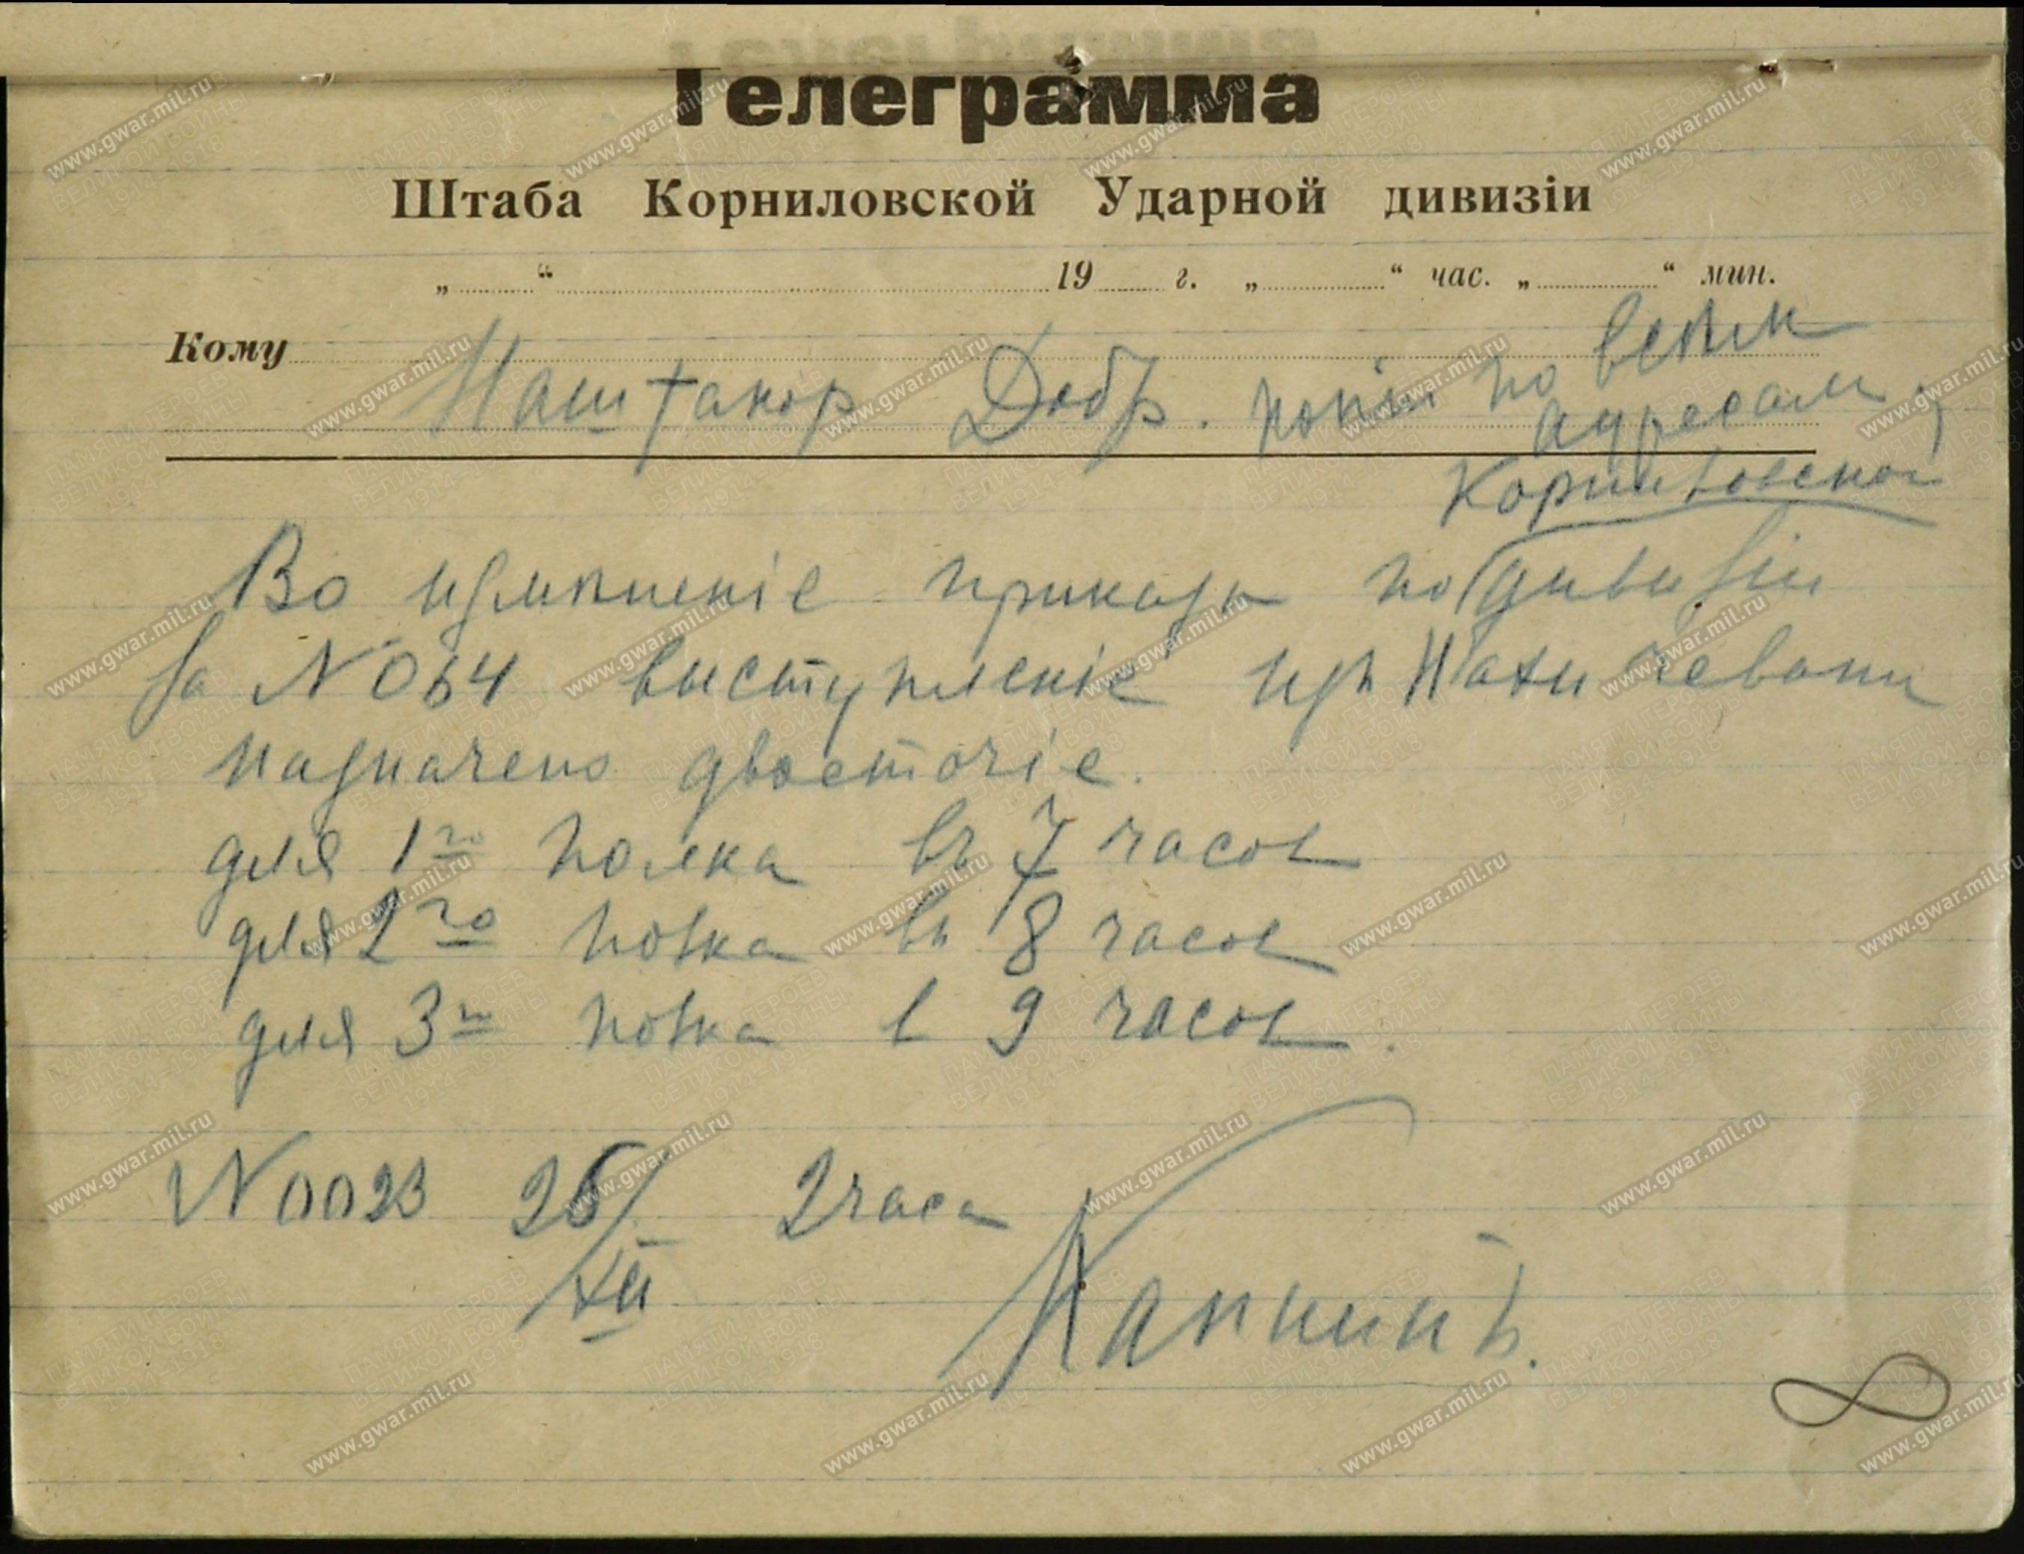 Телеграмма
Штаба Корниловской Ударной дивизіи
„ “ 19 г. „ “ час. „ “ мин.
Кому Наштакор Добр. копіи по всѣм
адресам
Корниловской
Во измѣненіе приказа по дивизіи
за N 064 выступленіе изъ Нахичевани
назначено двоеточіе.
для 1го полка въ 7 часов
для 2го полка въ 8 часов
для 3го полка в 9 часов.
N 0023 26/XII 2 часа
Капнинъ.
8
www.gwar.mil.ru
ПАМЯТИ ГЕРОЕВ
ВЕЛИКОЙ ВОЙНЫ
1914-1918